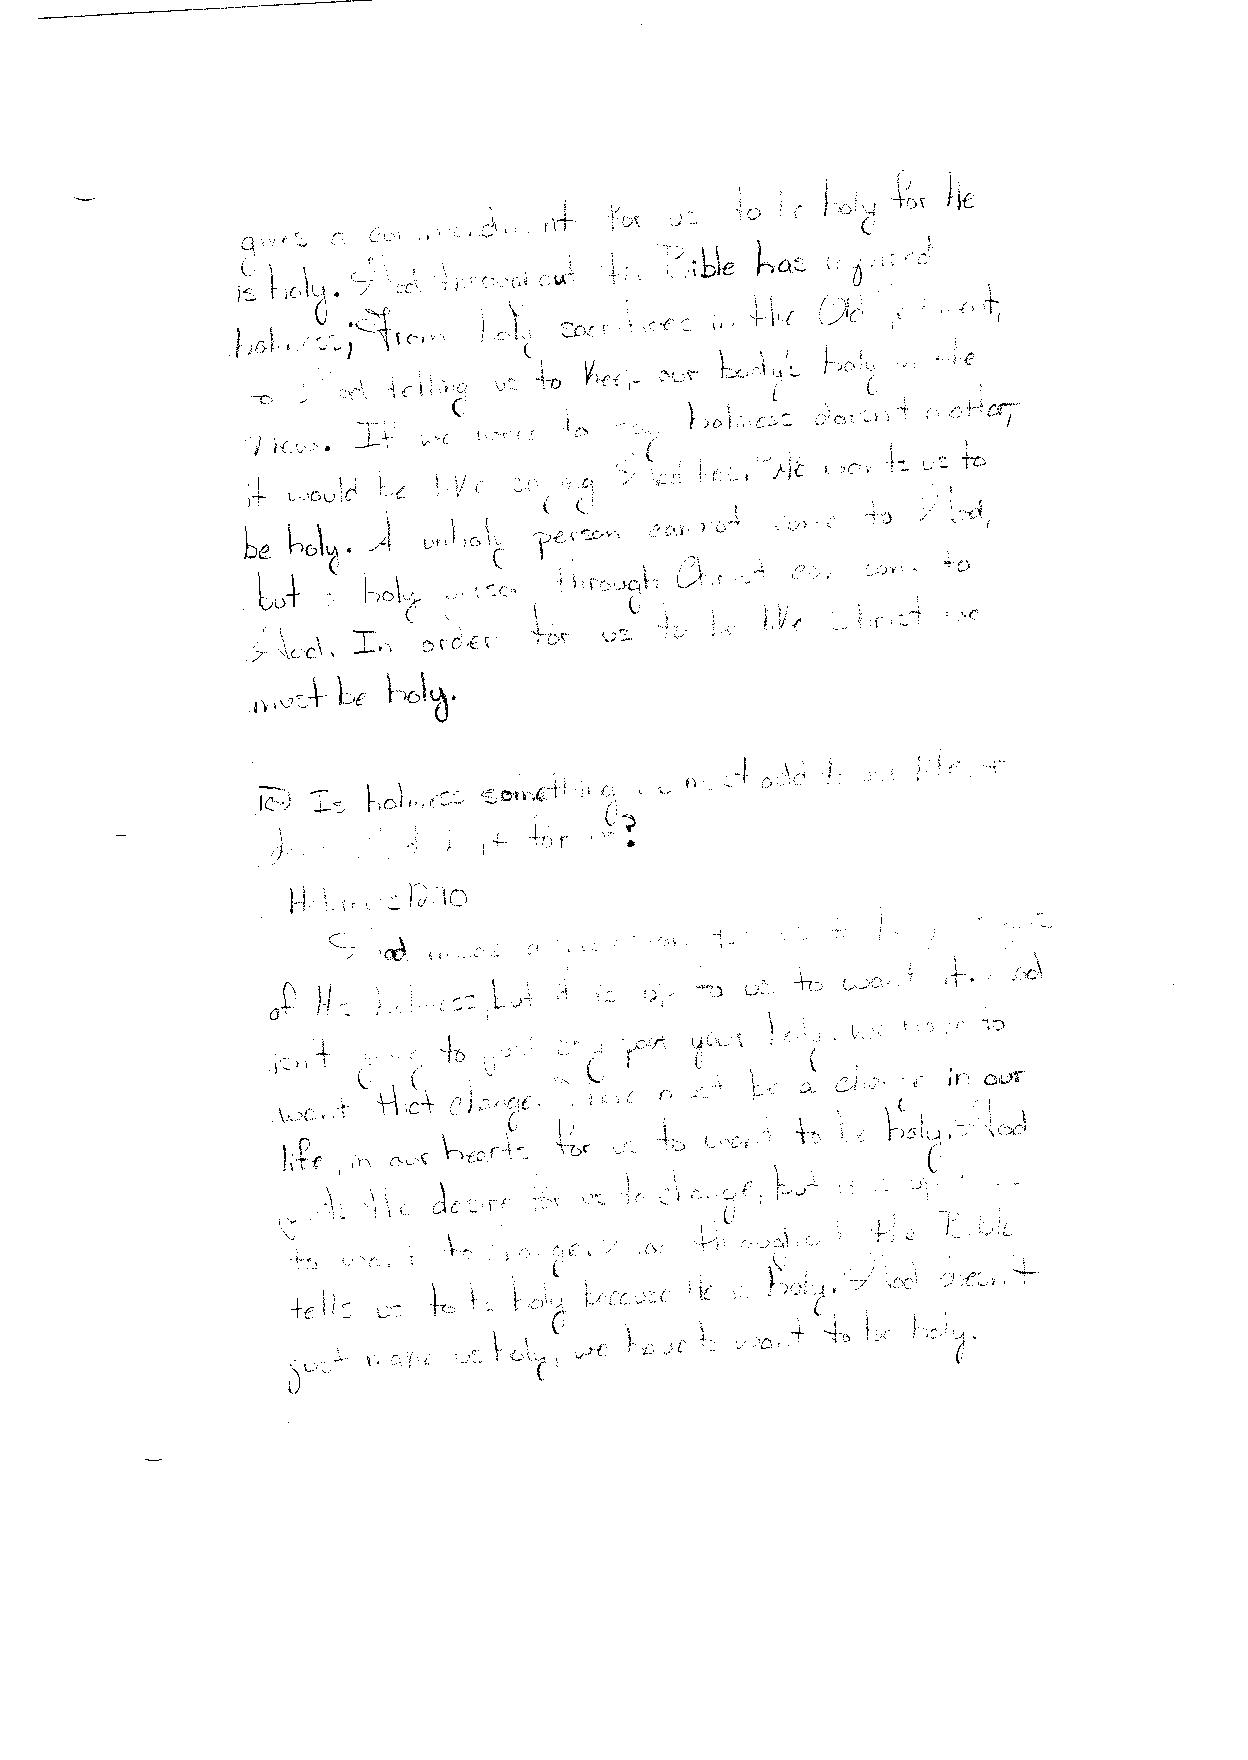 gives a commandment for us to be holy for He
is holy. God throughout the Bible has required
holiness; From holy sacrifices in the Old
to God telling us to keep our body's holy in the
view. If we were to say holiness doesn't matter,
it would be like saying God lies. He wants us to
be holy. A unholy person cannot come to God,
but a holy person through Christ can come to
God. In order for us to be like Christ we
must be holy.
10) Is holiness something we must add to our life, or
it for us?
Hebrews 12:10
God makes
of His holiness, but it is up to us to want it. God
isn't going to just your holy. we have to
want that change. There must be a change in our
life, in our hearts for us to want to be holy. God
puts the desire for us to change, but is up
to want to change. throughout the Bible
tells us to be holy because He is holy. God doesn't
just make us holy, we have to want to be holy.